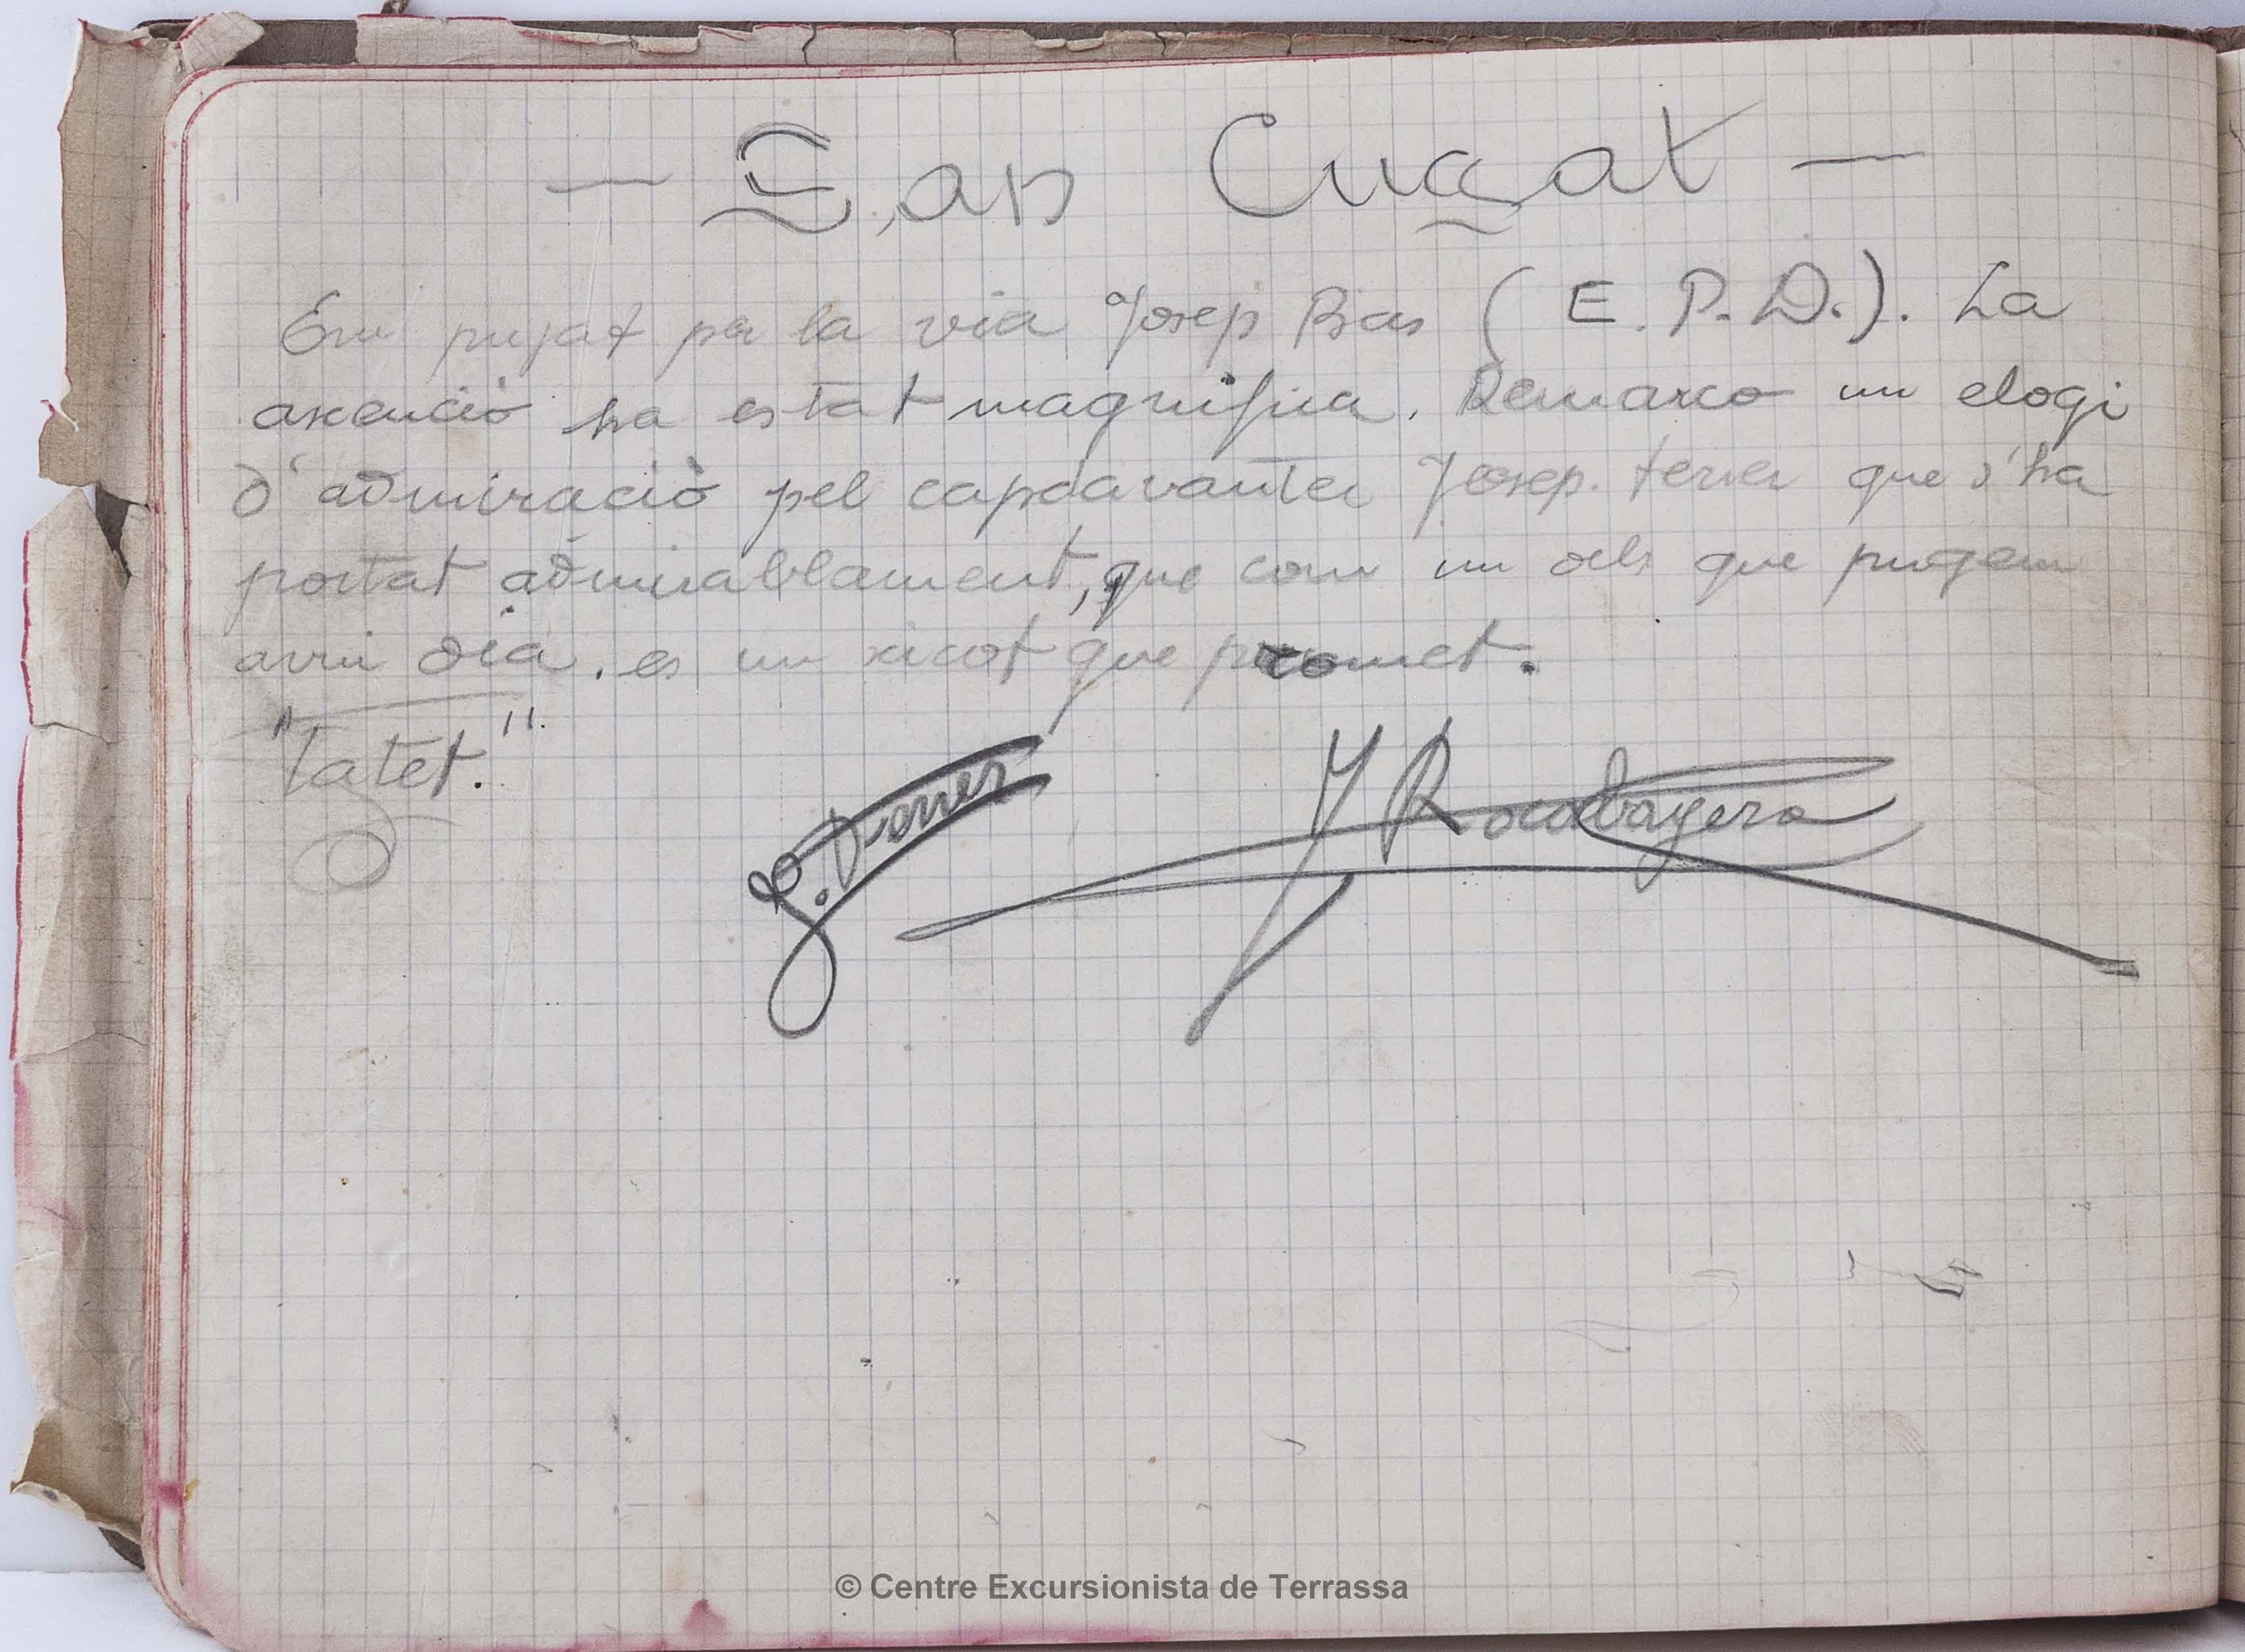 — San Cugat —
Em pujat per la via Josep Bas (E.P.D.). La
axenciò ha estat magnifica. Remarco un elogi
d'admiraciò pel capdavanter Josep. ferrer que s'ha
portat admirablament, que com un dels que pugem
avui dia. es un xicot que promet.
"Tatet."
J. Torres
J Rocabayera
© Centre Excursionista de Terrassa